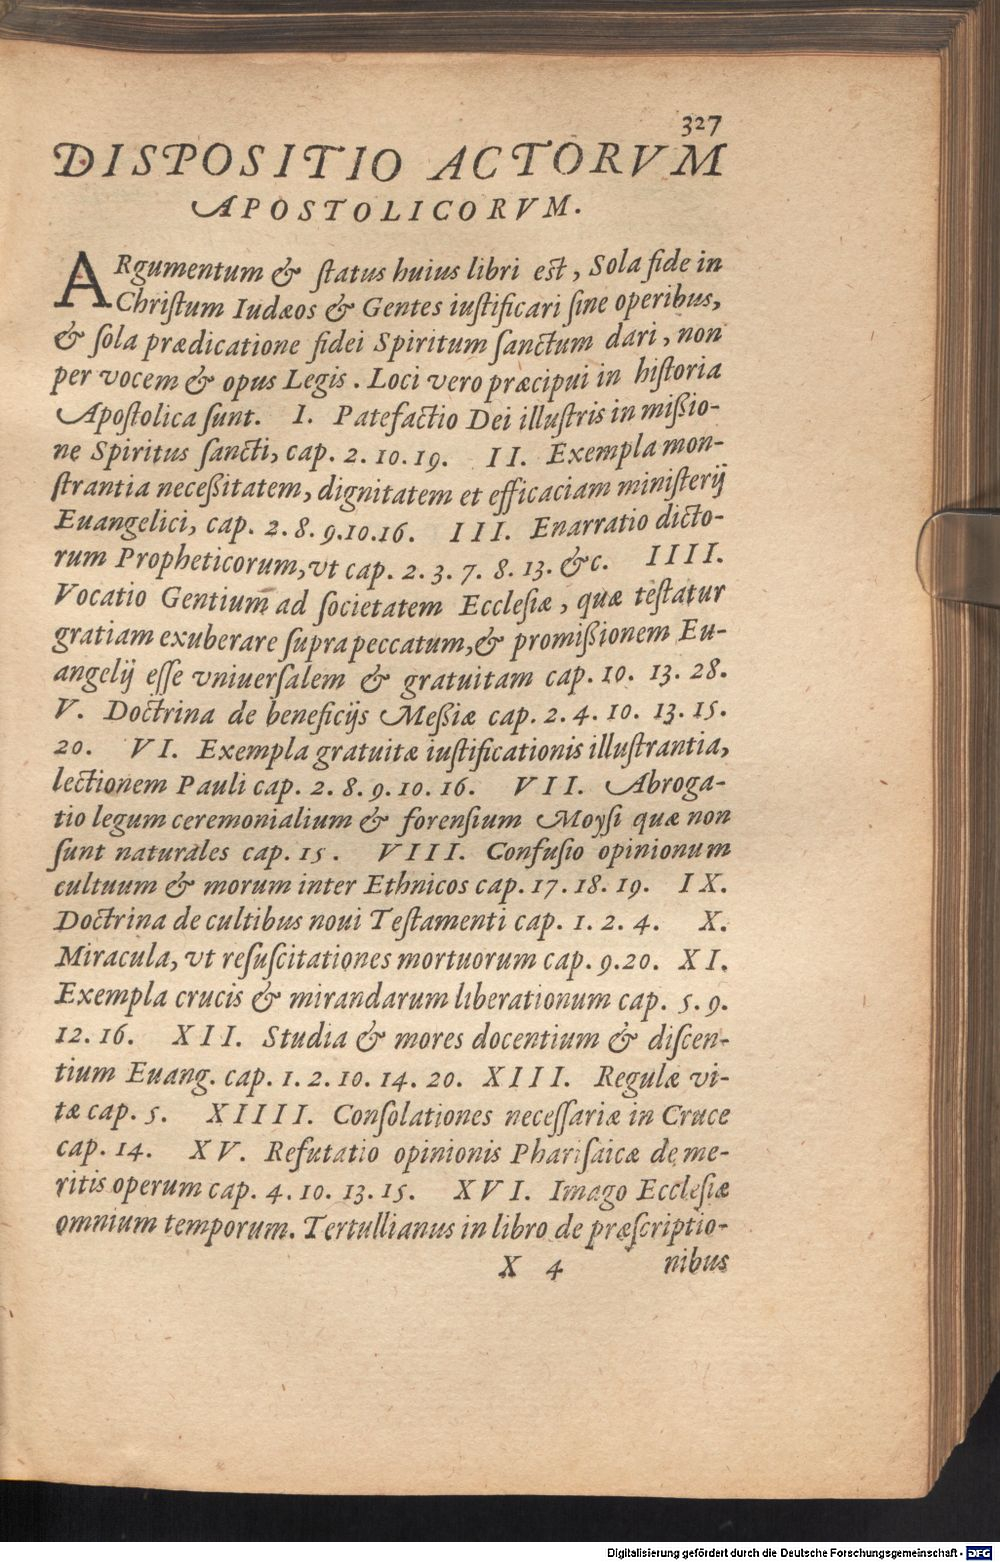 327
DISPOSITIO ACTORVM
APOSTOLICORVM.
ARgumentum & ſtatus huius libri est, Sola fide in
Chriſtum Iudæos & Gentes iuſtificari ſine operibus,
& ſola prædicatione fidei Spiritum ſanctum dari, non
per vocem & opus Legis. Loci vero præcipui in hiſtoria
Apoſtolica ſunt. I. Patefactio Dei illuſtris in mißio-
ne Spiritus ſancti, cap. 2. 10. 19. II. Exempla mon-
ſtrantia neceßitatem, dignitatem et efficaciam miniſterij
Euangelici, cap. 2. 8. 9.10.16. III. Enarratio dicto-
rum Propheticorum, vt cap. 2. 3. 7. 8. 13. &c. IIII.
Vocatio Gentium ad ſocietatem Eccleſiæ, quæ teſtatur
gratiam exuberare ſupra peccatum, & promißionem Eu-
angelij eſſe vniuerſalem & gratuitam cap. 10. 13. 28.
V. Doctrina de beneficijs Meßiæ cap. 2. 4. 10. 13. 15.
20. VI. Exempla gratuitæ iuſtificationis illuſtrantia,
lectionem Pauli cap. 2. 8. 9. 10. 16. VII. Abroga-
tio legum ceremonialium & forenſium Moyſi quæ non
ſunt naturales cap. 15. VIII. Confuſio opinionum
cultuum & morum inter Ethnicos cap. 17. 18. 19. IX.
Doctrina de cultibus noui Teſtamenti cap. 1. 2. 4. X.
Miracula, vt reſuſcitationes mortuorum cap. 9.20. XI.
Exempla crucis & mirandarum liberationum cap. 5. 9.
12. 16. XII. Studia & mores docentium & diſcen-
tium Euang. cap. 1. 2. 10. 14. 20. XIII. Regulæ vi-
tæ cap. 5. XIIII. Conſolationes neceſſariæ in Cruce
cap. 14. XV. Refutatio opinionis Phariſaicæ de me-
ritis operum cap. 4. 10. 13. 15. XVI. Imago Eccleſiæ
omnium temporum. Tertullianus in libro de præſcriptio-
X 4 nibus
Digitalisierung gefördert durch die Deutsche Forschungsgemeinschaft - DFG